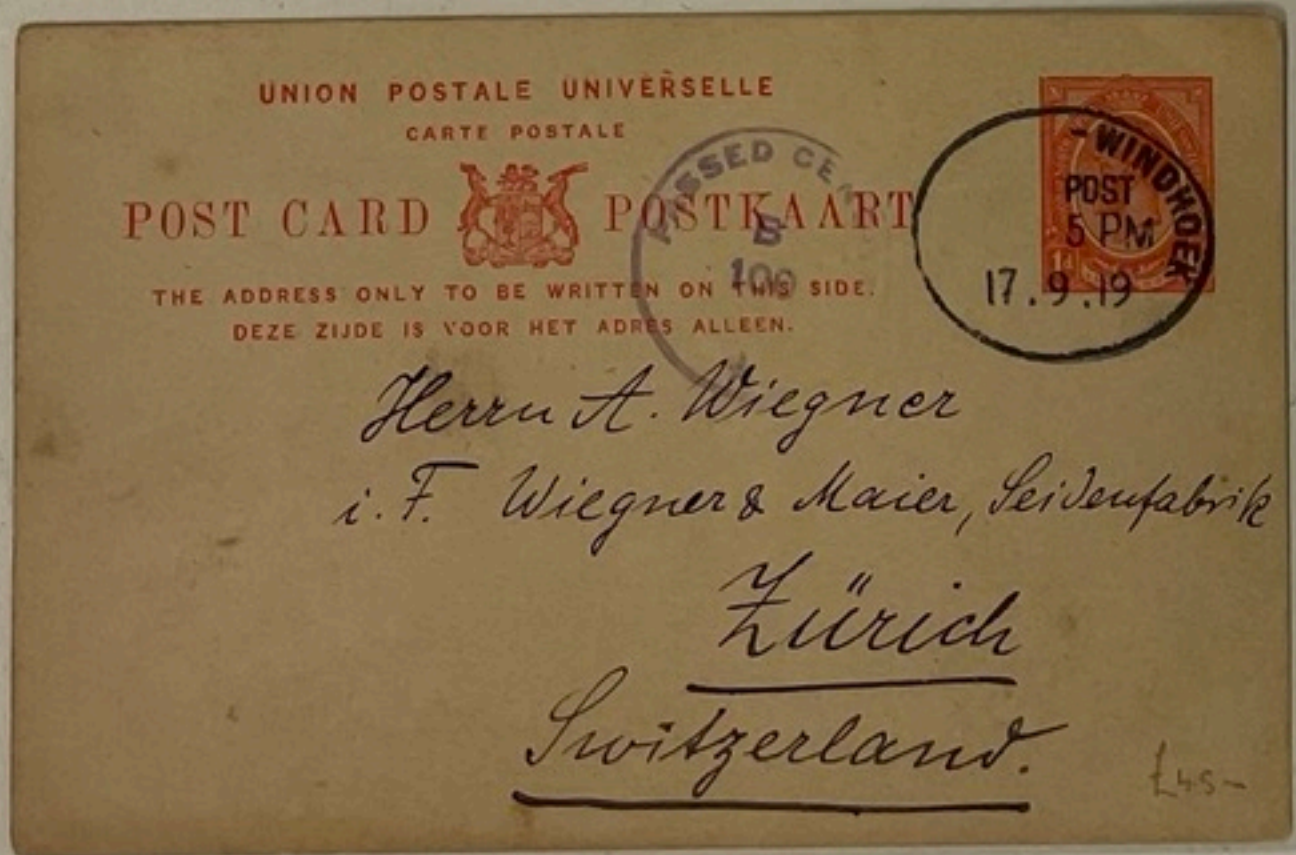 UNION POSTALE UNIVERSELLE
CARTE POSTALE
POST CARD POSTKAART
THE ADDRESS ONLY TO BE WRITTEN ON THIS SIDE.
DEZE ZIJDE IS VOOR HET ADRES ALLEEN.
PASSED CEN
B
100
- WINDHOEK
POST
5 PM
17.9.19
1d
Herrn A. Wiegner
i. F. Wiegner & Maier, Seidenfabrik
Zürich
Switzerland.
£45-